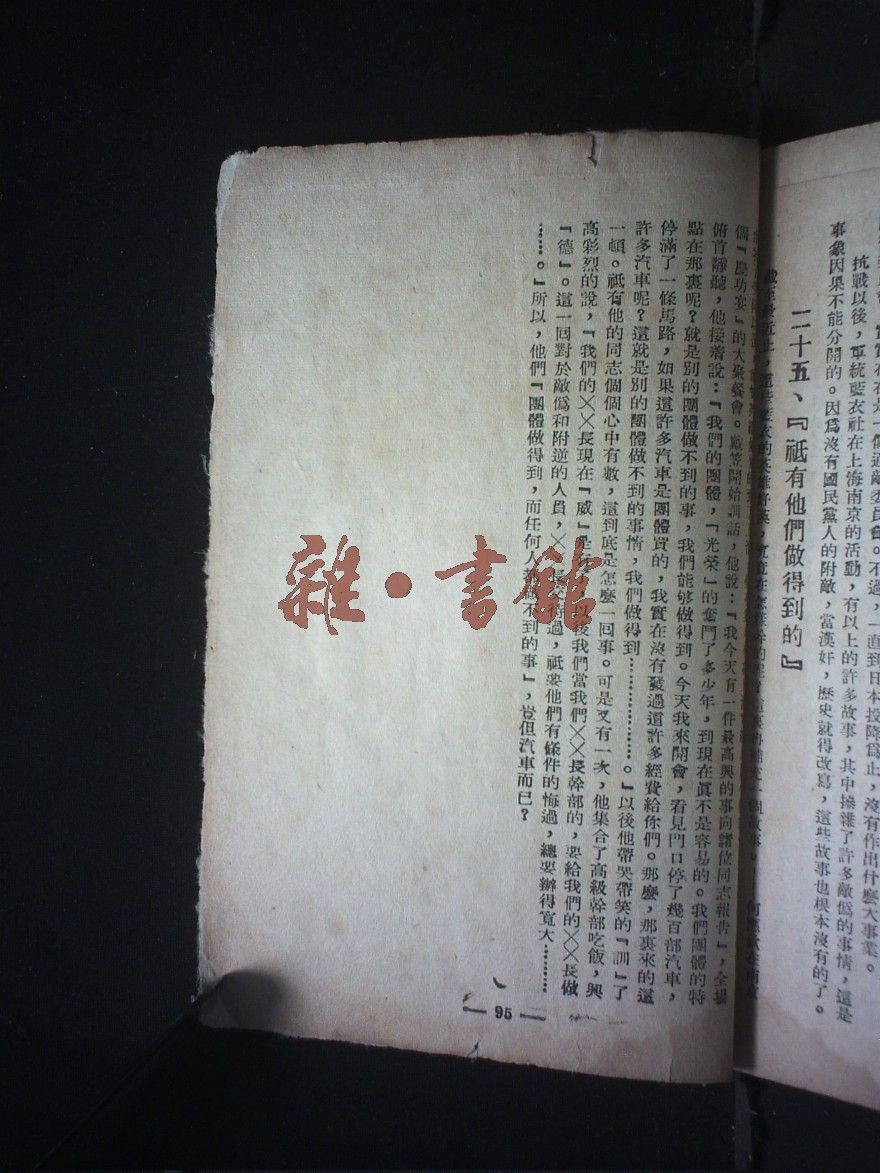 事象因果不能分開的。因爲沒有國民黨人的附敵，當漢奸，歷史就得改寫，這些故事也根本沒有的了。
抗戰以後，軍統藍衣社在上海南京的活動，有以上的許多故事，其中摻雜了許多敵僞的事情，這是
二十五、『祇有他們做得到的』
個『慶功宴』的大聚餐會。戴笠開始訓話，他說：『我今天有一件最高興的事向諸位同志報告』，全場
俯首靜聽，他接着說：『我們的團體，「光榮」的奮鬥了多少年，到現在眞不是容易的。我們團體的特
點在那裏呢？就是別的團體做不到的事，我們能够做得到。今天我來開會，看見門口停了幾百部汽車，
停滿了一條馬路，如果這許多汽車是團體買的，我實在沒有發過這許多經費給你們。那麽，那裏來的這
許多汽車呢？這就是別的團體做不到的事情，我們做得到………………。』以後他帶哭帶笑的『訓』了
一頓。祇有他的同志個個心中有數，這到底是怎麽一回事。可是又有一次，他集合了高級幹部吃飯，興
高彩烈的說，『我們的××長現在『威』是有了，以後我們當我們××長幹部的，要給我們的××長做
『德』。這一回對於敵僞和附逆的人員，×長交待過，祇要他們有條件的悔過，總要辦得寬大…………
……。』所以，他們『團體做得到，而任何人都做不到的事』，豈但汽車而已？
— 95 —
雜·書館